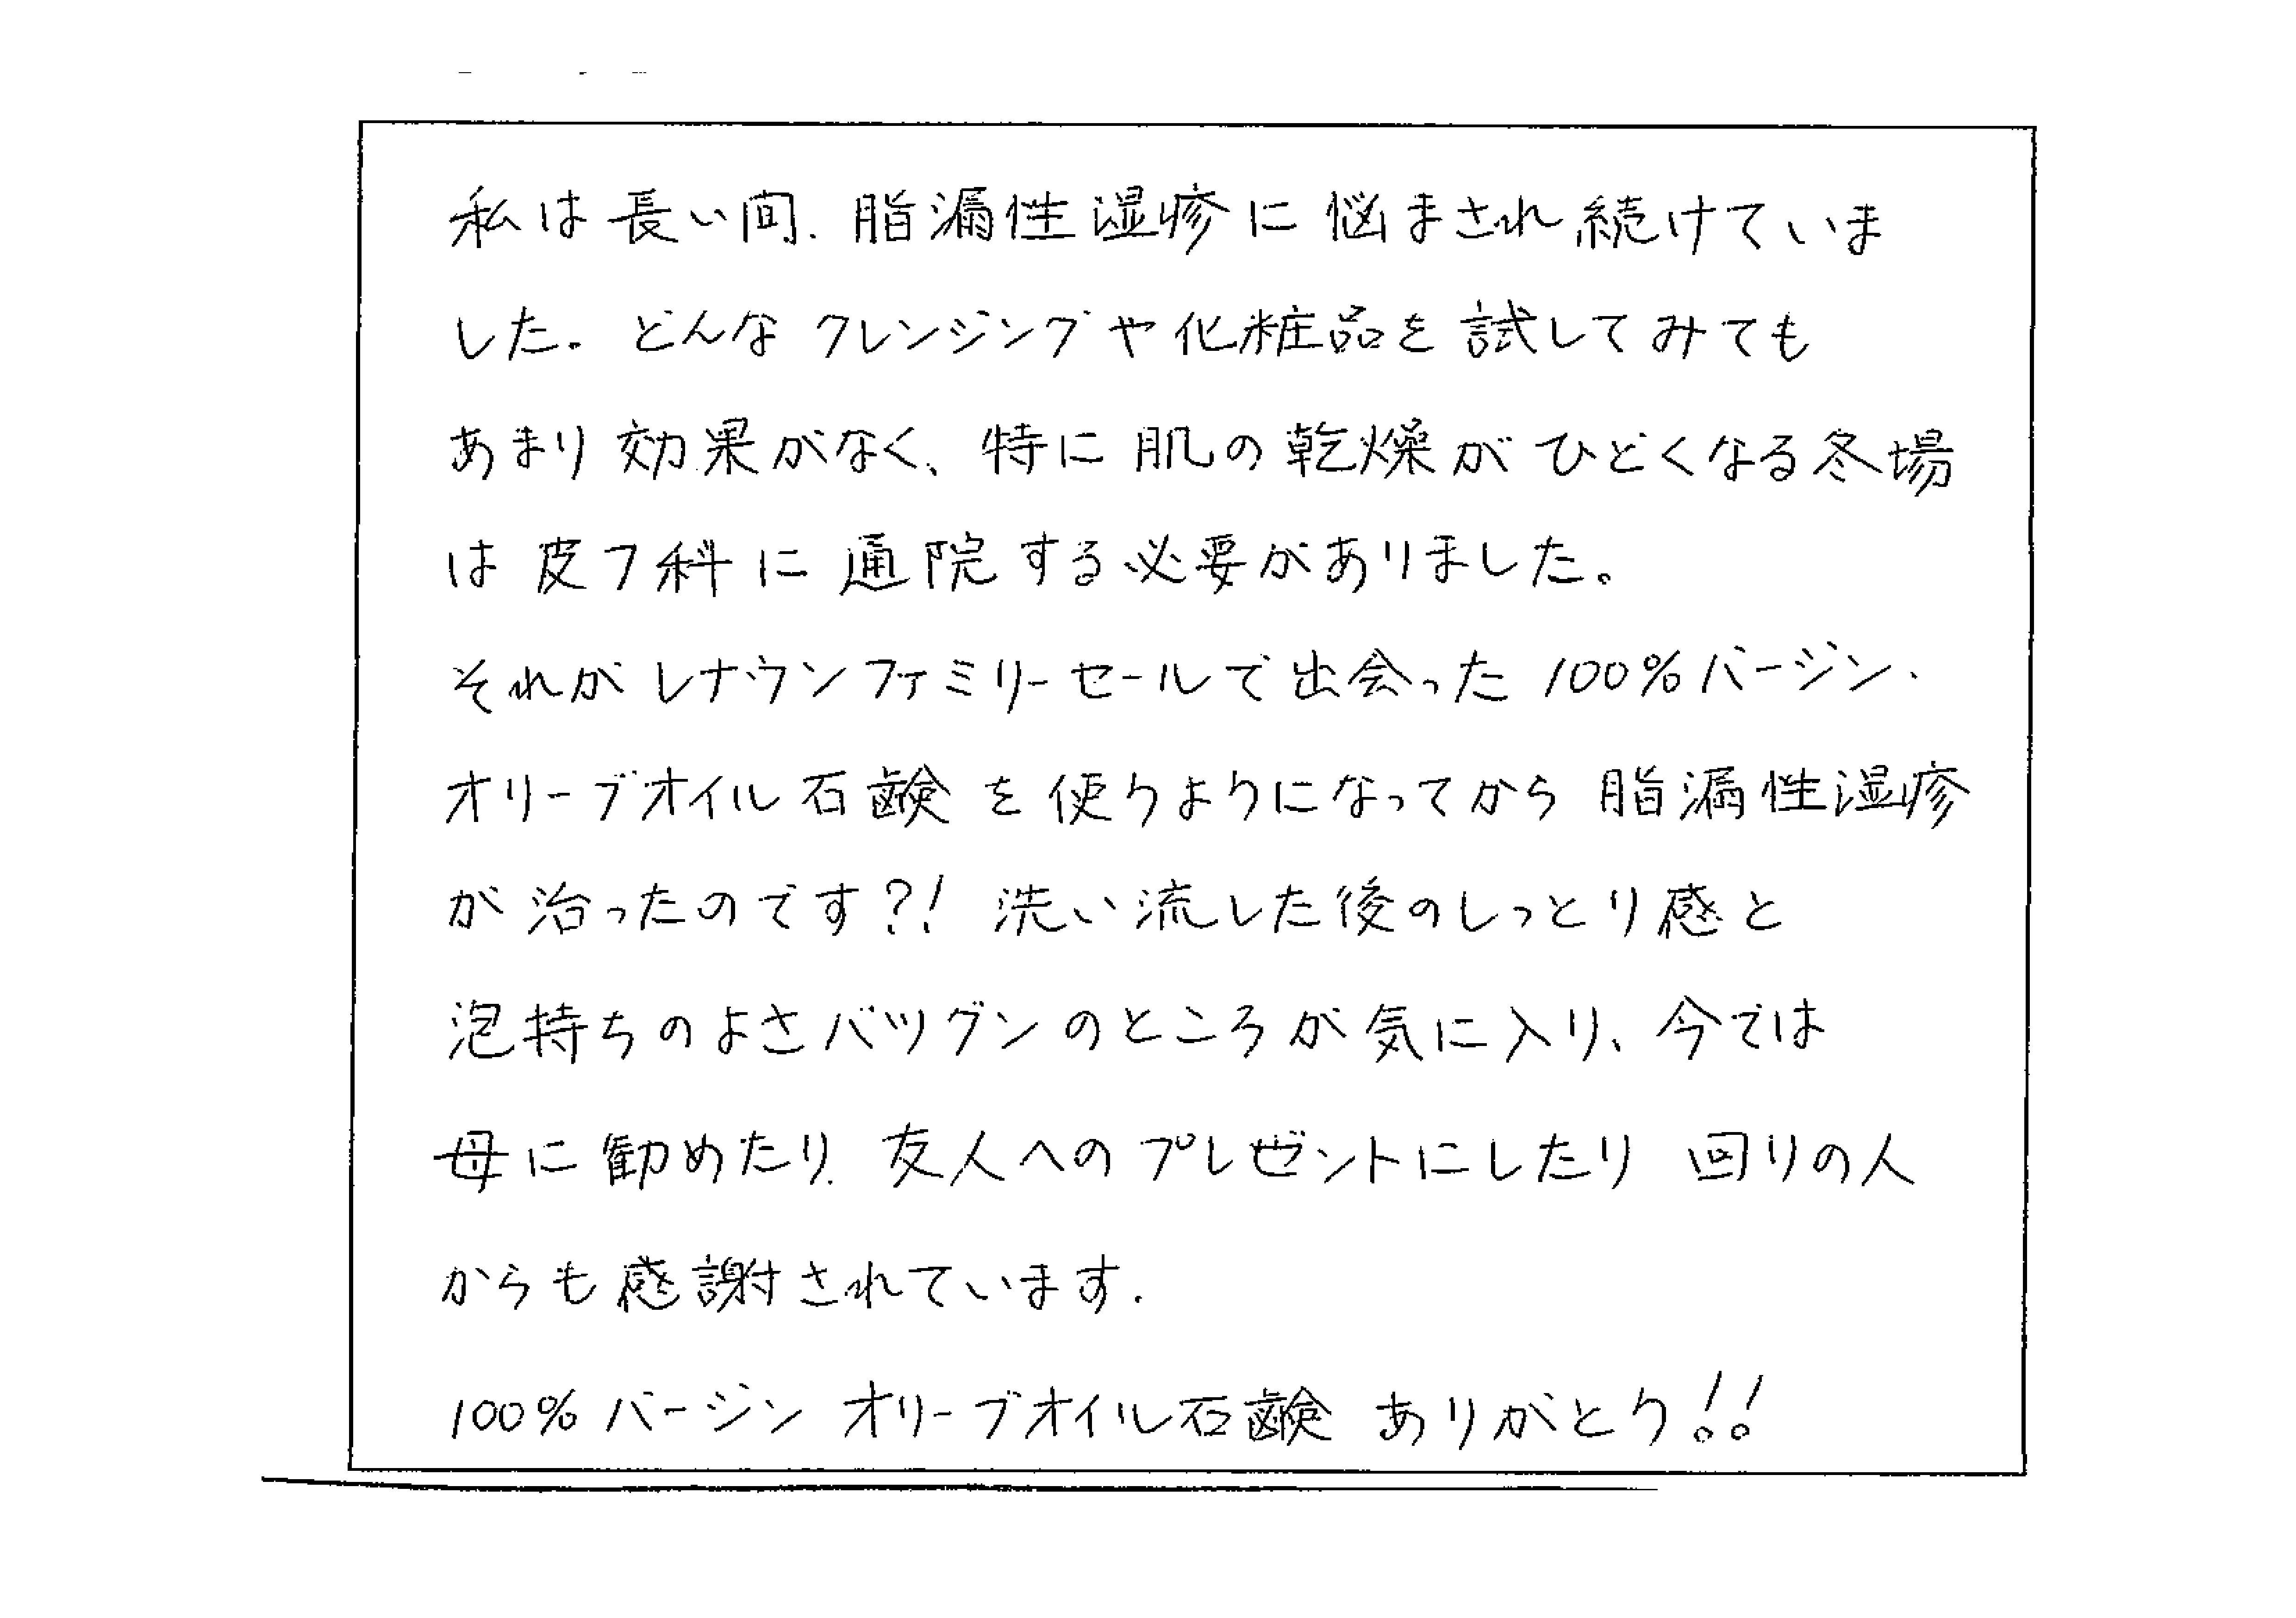 私は長い間、脂漏性湿疹に悩まされ続けていま
した。どんなクレンジングや化粧品を試してみても
あまり効果がなく、特に肌の乾燥がひどくなる冬場
は皮フ科に通院する必要がありました。
それがレナウンファミリーセールで出会った100%バージン・
オリーブオイル石鹸を使うようになってから脂漏性湿疹
が治ったのです?! 洗い流した後のしっとり感と
泡持ちのよさバツグンのところが気に入り、今では
母に勧めたり、友人へのプレゼントにしたり 回りの人
からも感謝されています.
100%バージン オリーブオイル石鹸 ありがとう!!